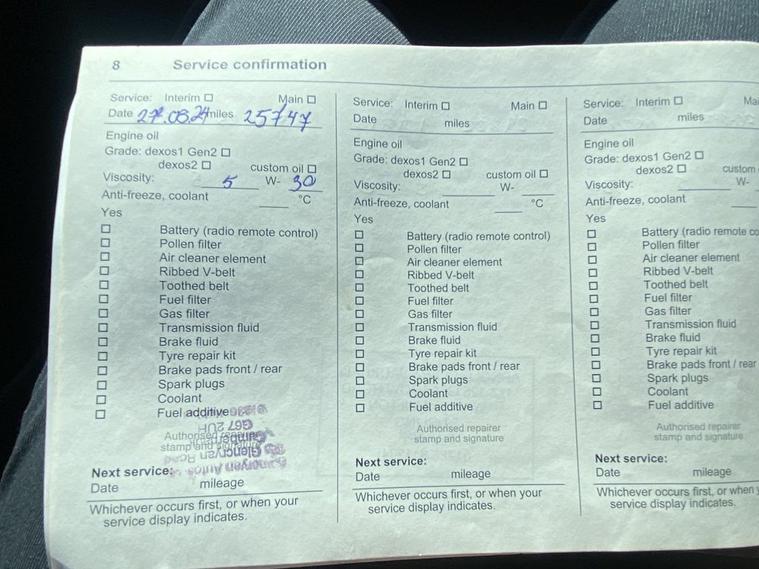 8 Service confirmation
Service: Interim ☐ Main ☐
Date 27.03.24 miles 25747
Engine oil
Grade: dexos1 Gen2 ☐
dexos2 ☐ custom oil ☐
Viscosity: 5 W- 30
Anti-freeze, coolant °C
Yes
☐ Battery (radio remote control)
☐ Pollen filter
☐ Air cleaner element
☐ Ribbed V-belt
☐ Toothed belt
☐ Fuel filter
☐ Gas filter
☐ Transmission fluid
☐ Brake fluid
☐ Tyre repair kit
☐ Brake pads front / rear
☐ Spark plugs
☐ Coolant
☐ Fuel additive
G67 2UH
Authorised repairer
stamp and signature
Next service:
Date mileage
Whichever occurs first, or when your
service display indicates.
Service: Interim ☐ Main ☐
Date miles
Engine oil
Grade: dexos1 Gen2 ☐
dexos2 ☐ custom oil ☐
Viscosity: W-
Anti-freeze, coolant °C
Yes
☐ Battery (radio remote control)
☐ Pollen filter
☐ Air cleaner element
☐ Ribbed V-belt
☐ Toothed belt
☐ Fuel filter
☐ Gas filter
☐ Transmission fluid
☐ Brake fluid
☐ Tyre repair kit
☐ Brake pads front / rear
☐ Spark plugs
☐ Coolant
☐ Fuel additive
Authorised repairer
stamp and signature
Next service:
Date mileage
Whichever occurs first, or when your
service display indicates.
Service: Interim ☐ Mai
Date miles
Engine oil
Grade: dexos1 Gen2 ☐
dexos2 ☐ custom
Viscosity: W-
Anti-freeze, coolant
Yes
☐ Battery (radio remote co
☐ Pollen filter
☐ Air cleaner element
☐ Ribbed V-belt
☐ Toothed belt
☐ Fuel filter
☐ Gas filter
☐ Transmission fluid
☐ Brake fluid
☐ Tyre repair kit
☐ Brake pads front / rear
☐ Spark plugs
☐ Coolant
☐ Fuel additive
Authorised repairer
stamp and signature
Next service:
Date mileage
Whichever occurs first, or when y
service display indicates.